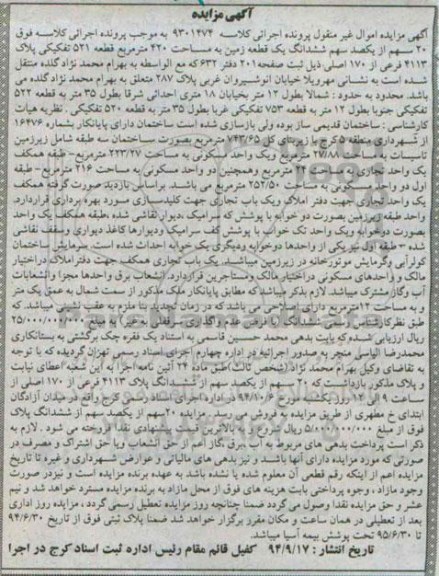 آگهی مزایده
آگهی مزایده اموال غیر منقول پرونده اجرائی کلاسه ۹۳۰۱۴۷۴ به موجب پرونده اجرائی کلاسه فوق
۲۰ سهم از یکصد سهم ششدانگ یک قطعه زمین به مساحت ۴۲۰ مترمربع قطعه ۵۲۱ تفکیکی پلاک
۴۱۱۳ فرعی از ۱۷۰ اصلی ذیل ثبت صفحه ۲۰۱ دفتر ۶۳۲ که مع الواسطه به بهرام محمد نژاد گلده منتقل
شده است به نشانی مهرویلا خیابان انوشیروان غربی پلاک ۲۸۷ متعلق به بهرام محمد نژاد گلده می
باشد. محدود به حدود: شمالا بطول ۱۲ متر بخیابان ۱۸ متری احداثی شرقا بطول ۳۵ متر به قطعه ۵۲۲
تفکیکی جنوبا بطول ۱۲ متر به قطعه ۷۵۳ تفکیکی غربا بطول ۳۵ متر به قطعه ۵۲۰ تفکیکی. نظریه هیات
کارشناسی: ساختمان قدیمی ساز بوده ولی بازسازی شده است ساختمان دارای پایانکار بشماره ۱۶۴۷۶
از شهرداری منطقه ۵ کرج بازیربنای کل ۷۴۳/۶۵ مترمربع بصورت ساختمان سه طبقه شامل زیرزمین
تاسیسات به مساحت ۲۷/۸۸ مترمربع ویک واحد مسکونی به مساحت ۲۲۳/۲۷ مترمربع - طبقه همکف
یک واحد تجاری به مساحت مترمربع وهمچنین دو واحد مسکونی به مساحت ۲۱۶ مترمربع - طبقه
اول دو واحد مسکونی به مساحت ۲۵۲/۵۰ مترمربع می باشد. براساس بازدید صورت گرفته همکف
یک واحد تجاری جهت دفتر املاک ویک باب تجاری جهت کلیدسازی مورد بهره برداری قراردارد.
واحد طبقه زیرزمین بصورت دو خوابه با پوشش کف سرامیک ،دیوار نقاشی شده ،طبقه همکف یک واحد
بصورت دوخوابه ویک واحد تک خواب با پوشش کف سرامیک ودیوارها کاغذ دیواری وسقف نقاشی
شده - طبقه اول نیز یکی از واحدها دوخوابه ودیگری یک خوابه احداث شده است. سرمایش ساختمان
کولرآبی وگرمایش موتورخانه در زیرزمین میباشد. یک باب تجاری همکف جهت دفتراملاک دراختیار
مالک و واحدهای مسکونی دراختیار مالک ومستاجرین قراردارد. انشعاب برق واحدها مجزا وانشعابات
آب وگاز مشترک میباشد. لازم بذکر میباشد که مطابق پایانکار ملک مذکور از سمت شمال به عمق یک متر
و به مساحت ۱۲ مترمربع دارای اصلاحی می باشد که در زمان تجدید بنا ملزم به عقب نشینی میباشد. که
طبق نظر کارشناس رسمی ششدانگ آن (بافرض عدم واگذاری سرقفلی به غیر) به مبلغ ۲۵/۰۰۰/۰۰۰/۰۰۰
ریال ارزیابی شده که بابت بدهی محمد حسین قاسمی به استناد یک فقره چک برگشتی به بستانکاری
محمدرضا الیاسی منجر به صدور اجرائیه در اداره چهارم اجرای اسناد رسمی تهران گردیده که با توجه
به تقاضای وکیل بهرام محمد نژاد (شخص ثالث) طبق ماده ۲۴ آئین نامه اجرا به این شعبه اعطای نیابت
و پلاک مذکور بازداشت که ۲۰ سهم از یکصد سهم از ششدانگ پلاک ۴۱۱۳ فرعی از ۱۷۰ اصلی از
ساعت ۹ الی ۱۲ روز مورخ ۹۴/۱۰/ در اداره اجرای اسناد رسمی کرج واقع در میدان آزادگان
ابتدای خ مطهری از طریق مزایده به فروش می رسد. مزایده ۲۰ سهم از یکصد سهم از ششدانگ پلاک
فوق از مبلغ ۵/۰۰۰/۰۰۰/۰۰۰ ریال شروع و به بالاترین قیمت پیشنهادی نقدا فروخته می شود. لازم به
ذکر است پرداخت بدهی های مربوط به آب ،برق ،گاز اعم از حق انشعاب ویا حق اشتراک و مصرف در
صورتی که مورد مزایده دارای آنها باشد. و نیز بدهی های مالیاتی و عوارض شهرداری و غیره تا تاریخ
مزایده اعم از اینکه رقم قطعی آن معلوم شده یا نشده باشد به عهده برنده مزایده است و نیز در صورت
وجود مازاد ، وجوه پرداختی بابت هزینه های فوق از محل مازاد به برنده مزایده مسترد خواهد شد و نیم
عشر و حق مزایده نقدا وصول می گردد ضمنا چنانچه روز مزایده تعطیل رسمی گردد ، مزایده روز اداری
بعد از تعطیلی در همان ساعت و مکان مقرر برگزار خواهد شد ضمنا پلاک ثبتی فوق از تاریخ ۹۴/۶/۳۰
تا ۹۵/۶/۳۰ تحت پوشش بیمه آسیا میباشد.
تاریخ انتشار : ۹۴/۹/۱۷ کفیل قائم مقام رئیس اداره ثبت اسناد کرج در اجرا